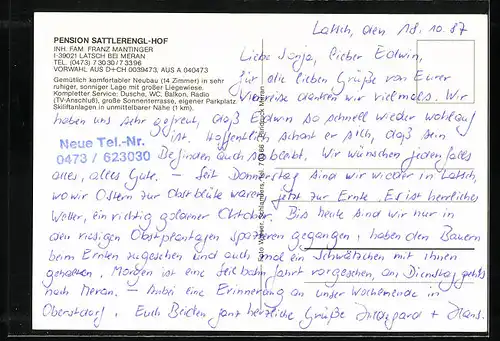 PENSION SATTLERENGL-HOF
INH. FAM. FRANZ MANTINGER
I-39021 LATSCH BEI MERAN
TEL. (0473) 73030 / 73396
VORWAHL AUS D+CH 0039473, AUS A 040473
Gemütlich komfortabler Neubau (14 Zimmer) in sehr
ruhiger, sonniger Lage mit großer Liegewiese.
Kompletter Service: Dusche, WC, Balkon, Radio
(TV-Anschluß), große Sonnenterrasse, eigener Parkplatz.
Skiliftanlagen in unmittelbarer Nähe (1 km).
Neue Tel.-Nr.
0473 / 623030
Latsch, den 18.10.87
Liebe Sonja, lieber Edwin,
für die lieben Grüße von Eurer
Vierreise danken wir vielmals. Wir
haben uns sehr gefreut, daß Edwin so schnell wieder wohlauf
ist. Hoffentlich schont er sich, daß sein
Befinden auch so bleibt. Wir wünschen jedenfalls
alles, alles Gute. – Seit Donnerstag sind wir wieder in Latsch,
wo wir Ostern zur Obstblüte waren, jetzt zur Ernte. Es ist herrliches
Wetter, ein richtig goldener Oktober. Bis heute sind wir nur in
den riesigen Obstplantagen spazieren gegangen, haben den Bauern
beim Ernten zugesehen und auch mal ein Schwätzchen mit ihnen
gehalten. Morgen ist eine Seilbahnfahrt vorgesehen, am Dienstag geht's
nach Meran. – Anbei eine Erinnerung an unser Wochenende in
Oberstdorf. Euch Beiden ganz herzliche Grüße Hildegard + Hans.